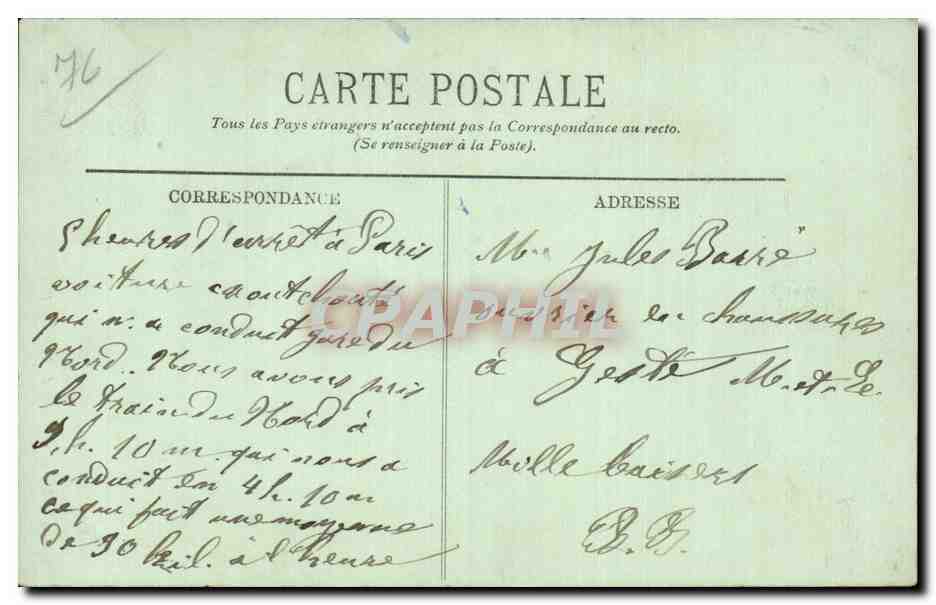 76
CARTE POSTALE
Tous les Pays etrangers n'acceptent pas la Correspondance au recto.
(Se renseigner à la Poste).
CORRESPONDANCE
5 heures d'arrêt à Paris
voiture caoutchouté
qui n. a conduit gare du
Nord. Nous avons pris
le train du Nord à
h. 10 m. qui nous a
conduit en 4 h. 10 m
ce qui fait une moyenne
de 90 kil. à l'heure
ADRESSE
Mr Jules Barré
ouvrier en chaussures
à Gesté M.-et-L.
Mille baisers
B. B.
CPAPHIL